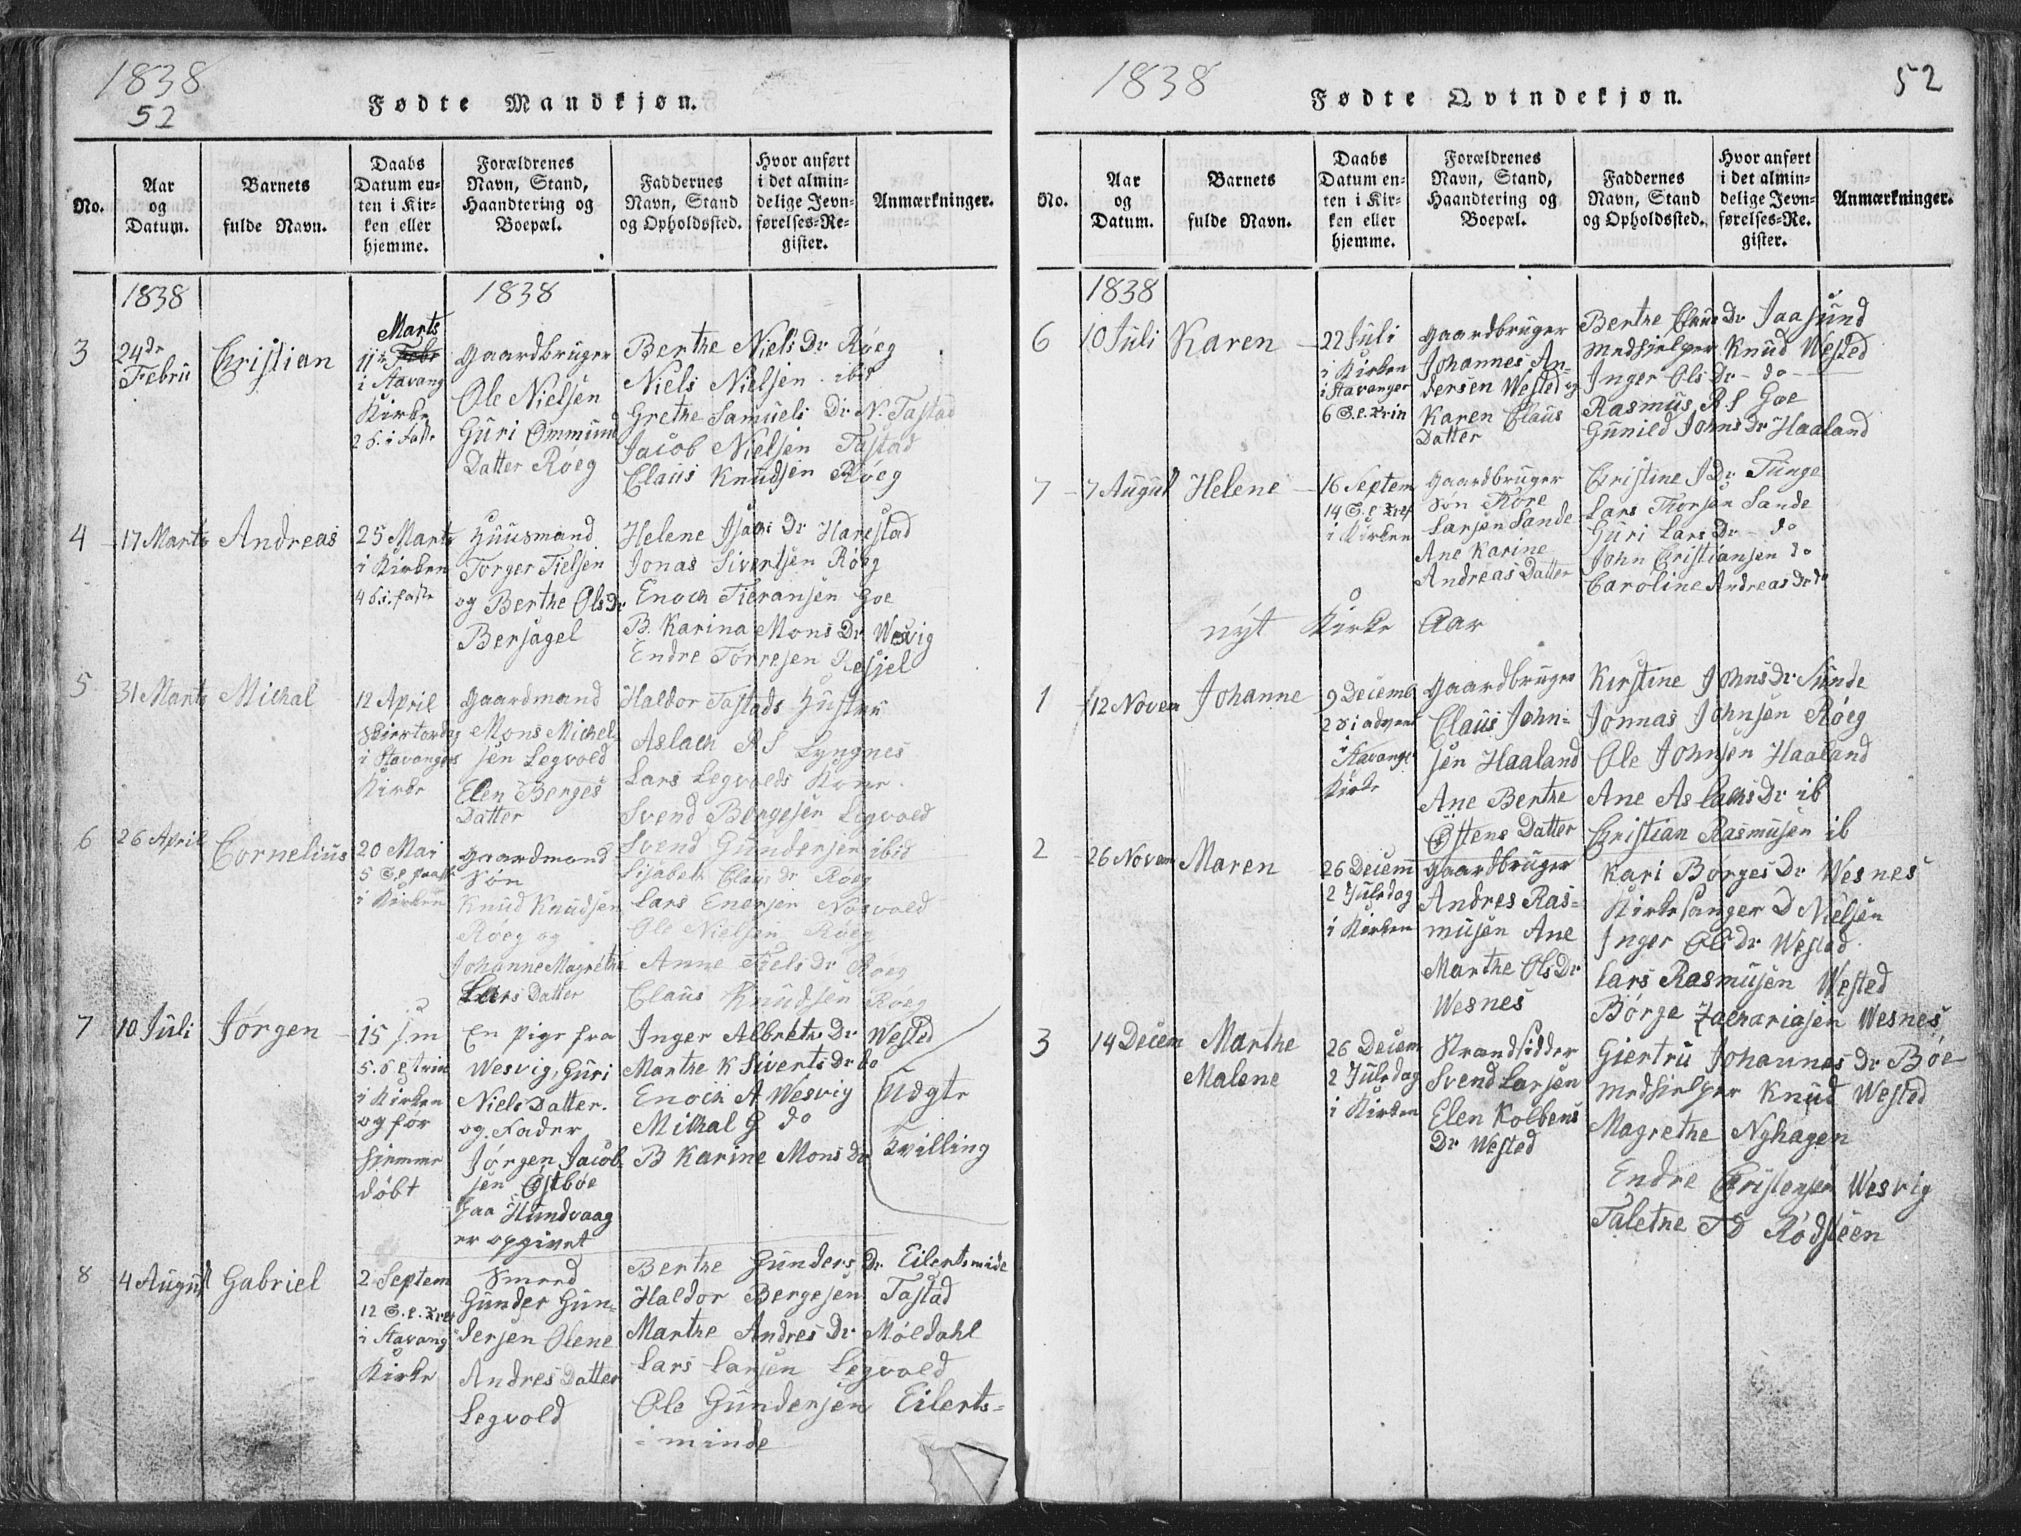 1838
52
Fødte Mandkjøn.
No.
Aar
og
Datum.
Barnets
fulde Navn.
Daabs
Datum en-
ten i Kir-
ken eller
hjemme.
Forældrenes
Navn, Stand,
Haandtering og
Boepæl.
Faddernes
Navn, Stand
og Opholdssted.
Hvor anført
i det almin-
delige Jevn-
førelses-Re-
gister.
Anmærkninger.
1838
1838
3
24de
Febru
Christian
Marts
11te Febr
i Stavang
Kirke
2 S. i Faste
Gaardbruger
Ole Nielsen
Guri Ommund
Datter Røeg
Berthe Niels Dr Røeg
Niels Nielsen ibid
Grethe Samuels Dr N. Tastad
Jacob Nielsen Tastad
Claus Knudsen Røeg
4
17 Marts
Andreas
25 Marts
i Kirken
4 S. i faste
Huusmand
Torger Tielsen
og Berthe Ols Dr
Bersagel
Helene Isaas Dr Harestad
Jonas Sivertsen Røeg
Enoch Tieransen Goe
B. Karina Mons Dr Wesvig
Endre Torresen
5
31 Marts
Michal
12 April
Skiertorsdag
i Stavangers
Kirke
Gaardmand
Mons Michel-
sen Legvold
Elen Berges
Datter
Haldor Tastads Hustru
Aslach R S Lyngnes
Lars Legvolds Kone
Svend Bergesen Legvold
Svend Gundersen ibid
6
26 April
Cornelius
20 Mai
5 S. e. paaske
i Kirken
Gaardmand
Søn
Knud Knudsen
Røeg og
Johanne Magrethe
Lars Datter
Lisabeth Claus Dr Røeg
Lars Enersen Nøsvold
Ole Nielsen Røeg
Anne Tiels Dr Røeg
Claus Knudsen Røeg
7
10 Juli
Jørgen
15 Jm
5. S e trin
i Kirken
og før
hjemme
døbt
En Pige fra
Wesvig, Guri
Niels Datter.
og Fader
Jørgen Jacob
sen Østbøe
paa Hundvaag
er opgivet
Inger Albrets Dr Wested
Marthe K Siverts Dr do
Enoch A Wesvig
Mikal G do
B Karine Mons Dr
Uægte
Tvilling
8
4 August
Gabriel
2 Septem
12 S. e. Tref
i Stavang
Kirke
Smed
Gunder Gun-
dersen Olene
Andres Datter
Legvold
Berthe Gunders Dr Eilertsminde
Haldor Bergesen Tastad
Marthe Andres Dr Møldahl
Lars Larsen Legvold
Ole Gundersen Eilerts-
minde
1838
52
Fødte Qvindekjøn.
No.
Aar
og
Datum.
Barnets
fulde Navn.
Daabs
Datum en-
ten i Kir-
ken eller
hjemme.
Forældrenes
Navn, Stand,
Haandtering og
Boepæl.
Faddernes
Navn, Stand
og Opholdssted.
Hvor anført
i det almin-
delige Jevn-
førelses-Re-
gister.
Anmærkninger.
1838
6
10 Juli
Karen
22 Juli
i Kirken
i Stavanger
6 S. e. Trin
Gaardbruger
Johannes An-
dersen Wested og
Karen Claus
Datter
Berthe Claus Dr Jaasund
Medhielper Knud Wested
Inger Ols Dr - do
Rasmus R S Goe
Gunild Johns Dr Haaland
7
7 August
Helene
16 Septem
14 S. e. Tref
i Kirken
Gaardbruger
Søn Tore
Larsen Sande
Ane Karine
Andreas Datter
Christine J Dr Tunge
Lars Thorsen Sande
Guri Lars Dr - do
John Christiansen do
Caroline Andreas Dr do
nyt Kirke Aar
1
12 Novem
Johanne
9 Decemb
2 S i advent
i
Stavanger
Kirke
Gaardbruger
Claus John-
sen Haaland
Ane Berthe
Østens Datter
Kirstine Johns Dr Sunde
Jonnas Johnsen Røeg
Ole Johnsen Haaland
Ane Aslachs Dr ib
Christian Rasmusen ib
2
26 Novem
Maren
26 Decem
2 Juledag
i Kirken
Gaardbruger
Andres Ras-
musen Ane
Marthe Ols Dr
Wesnes
Kari Børges Dr Wesnes
Kirkesanger D Nielsen
Inger Ols Dr Wested
Lars Rasmusen Wested
Børge Zachariasen Wesnes
3
14 Decem
Marthe
Malene
26 Decem
2 Juledag
i Kirken
Strandsidder
Svend Larsen
Elen Kolbens
Dr Wested
Giertru Johannes Dr Bøe
Medhielper Knud Wested
Magrethe Nyhagen
Endre Christensen Wesvig
Talethe T D Rødsteen